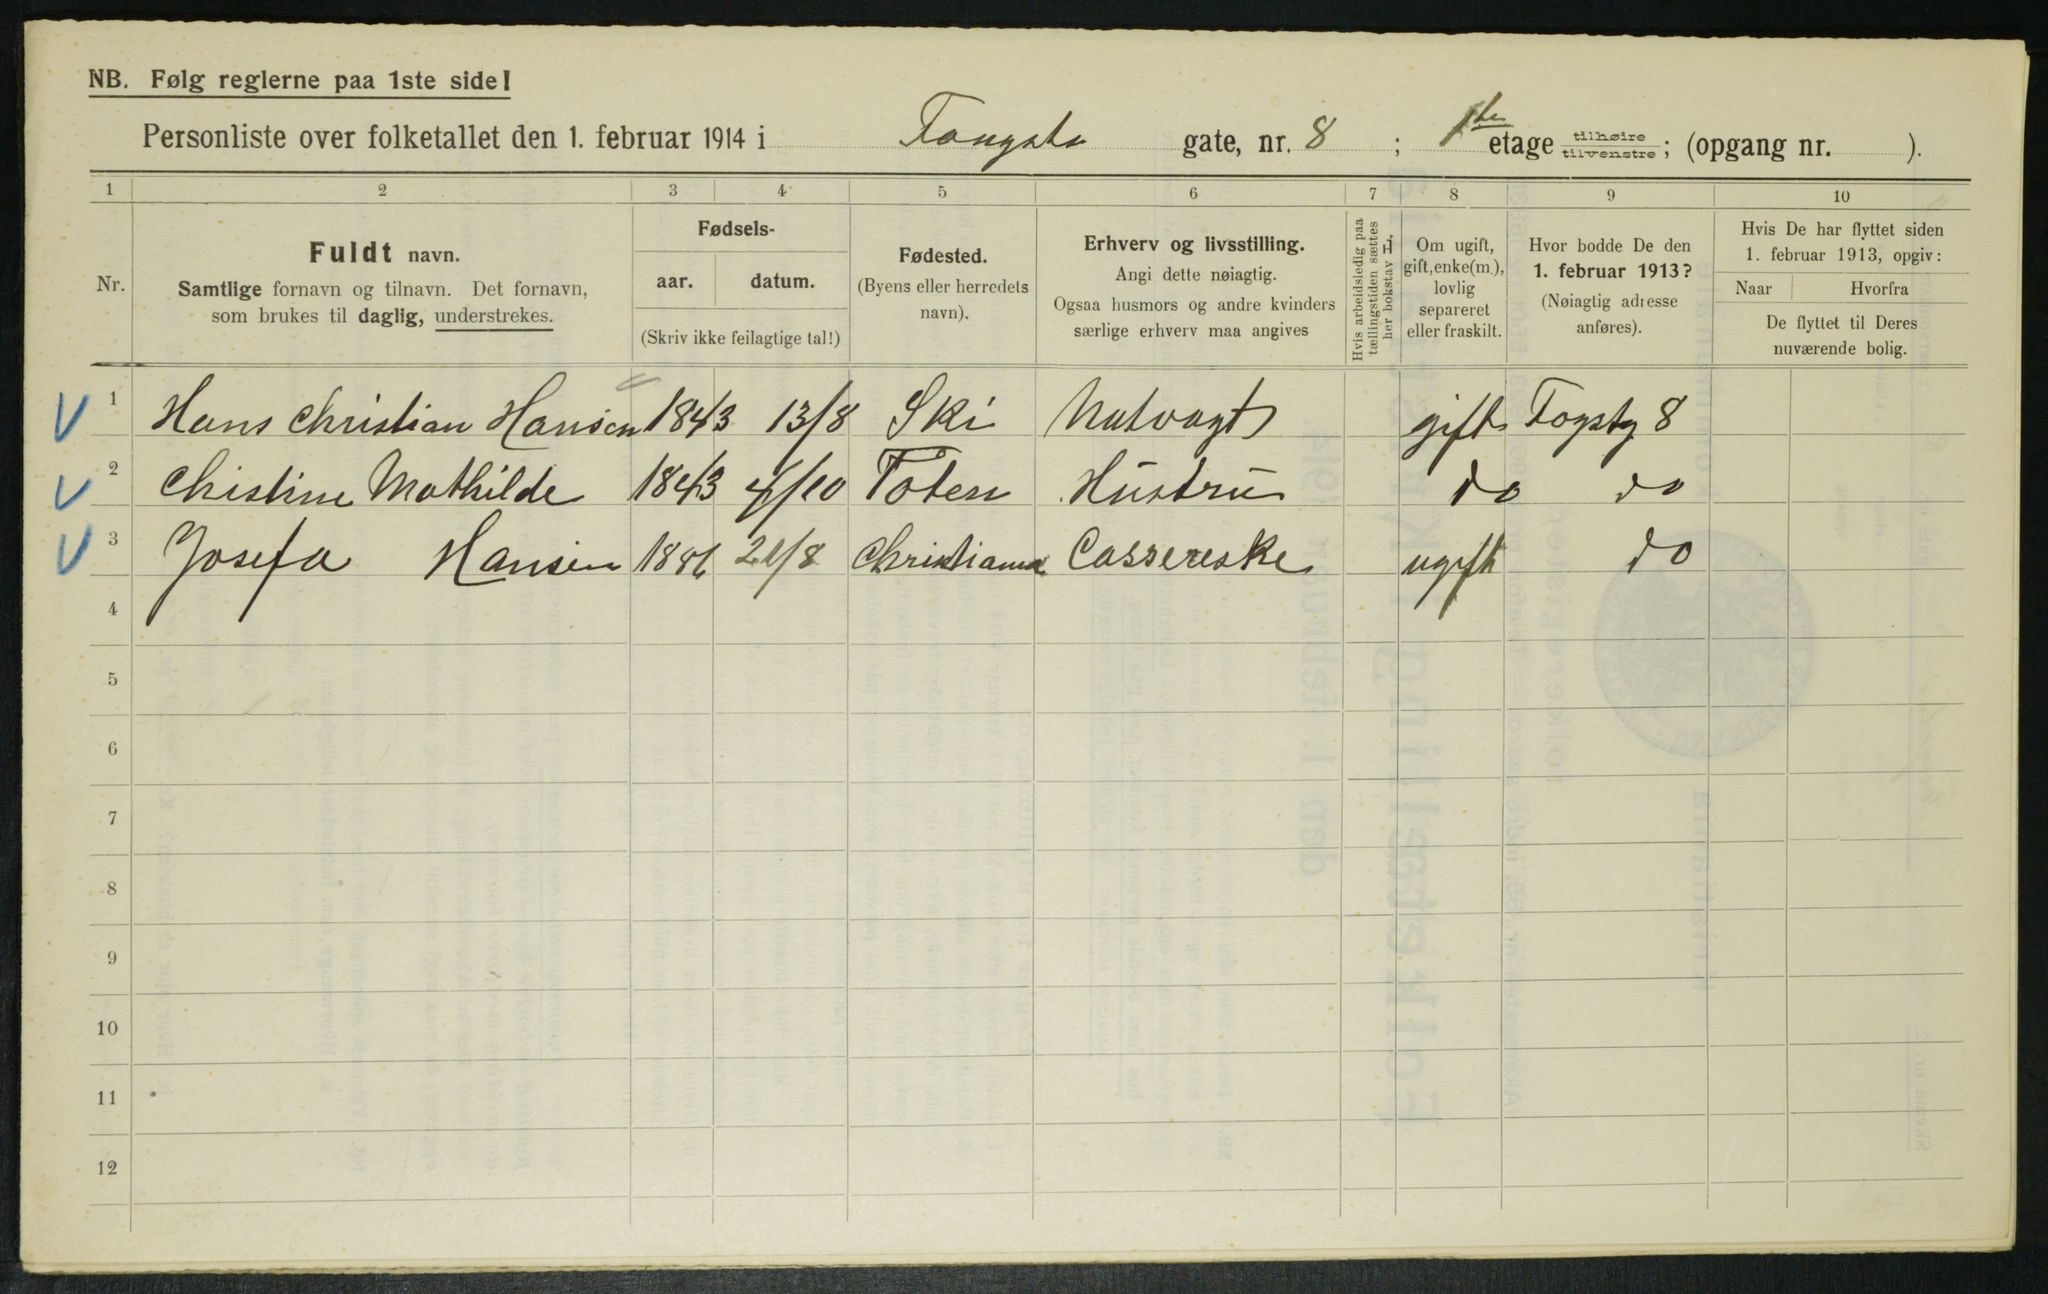 NB. Følg reglerne paa 1ste side!
Personliste over folketallet den 1. februar 1914 i gate, nr. 8 ; 1ste etage tilhøire tilvenstre; (opgang nr. ).
1 2 3 4 5 6 7 8 9 10
Nr.
Fuldt navn.
Samtlige fornavn og tilnavn. Det fornavn,
som brukes til daglig, understrekes.
Fødsels-
aar. datum.
(Skriv ikke feilagtige tal!)
Fødested.
(Byens eller herredets
navn).
Erhverv og livsstilling.
Angi dette nøiagtig.
Ogsaa husmors og andre kvinders
særlige erhverv maa angives
Hvis arbeidsledig paa
tællingstiden sættes
her bokstav L,
Om ugift,
gift, enke(m.),
lovlig
separeret
eller fraskilt.
Hvor bodde De den
1. februar 1913?
(Nøiagtig adresse
anføres).
Hvis De har flyttet siden
1. februar 1913, opgiv:
Naar Hvorfra
De flyttet til Deres
nuværende bolig.
1 Hans Christian Hansen 1843 13/8 Ski gift 8
2 Christine Mathilde 1843 4/10 Toten Hustru do do
3 Josefa Hansen 1886 21/8 Christiania Casserske ugift do
4
5
6
7
8
9
10
11
12